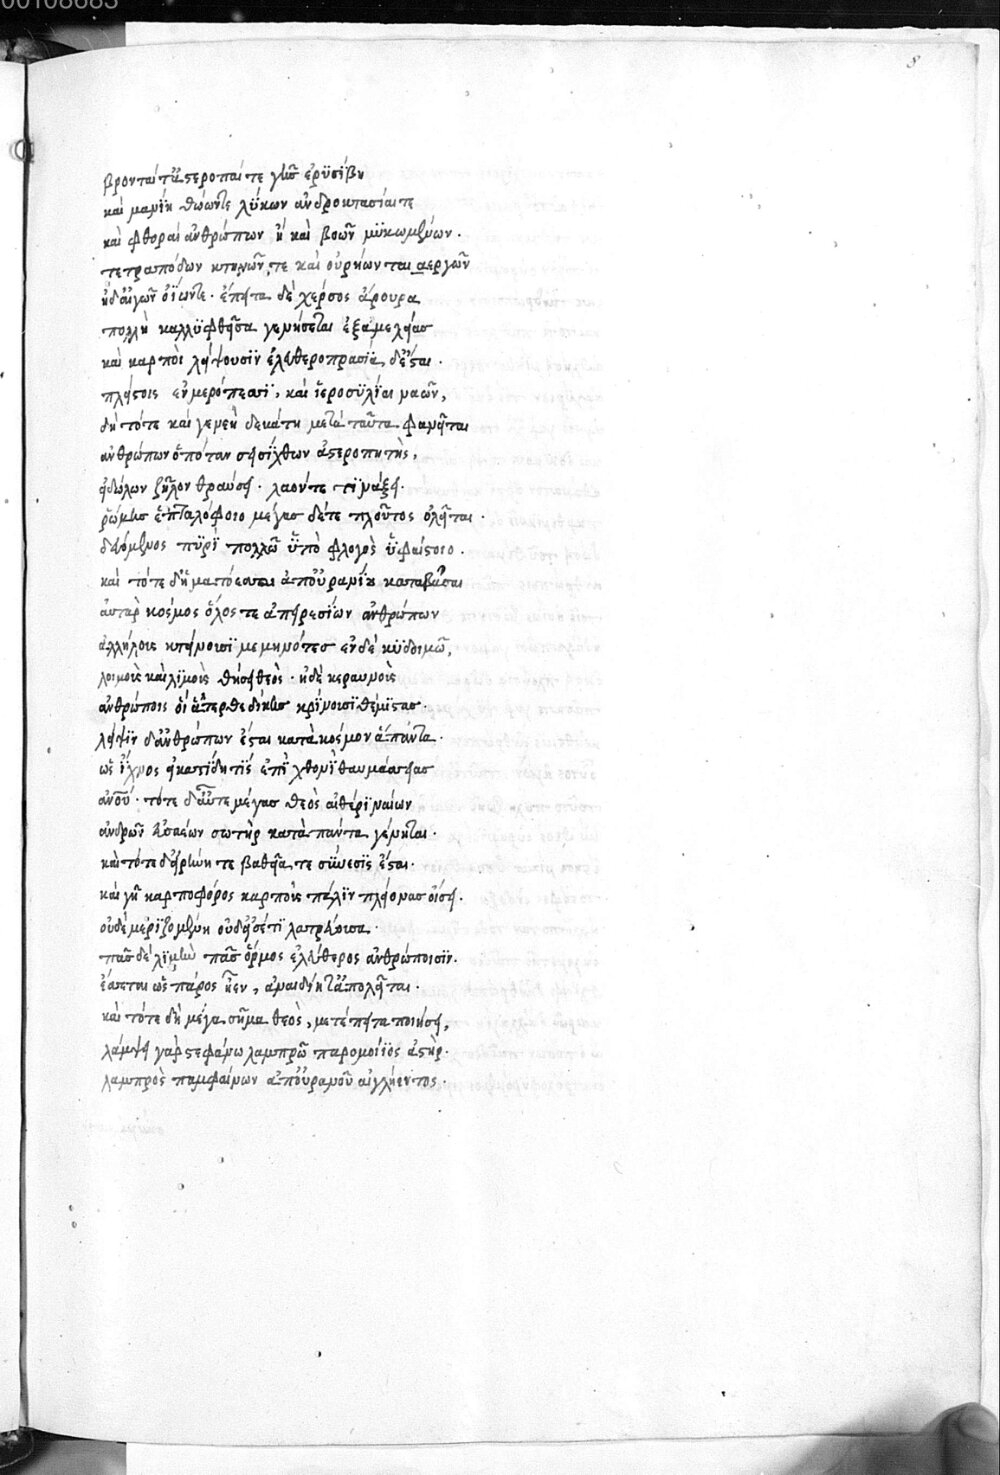 00108683
8
βρονταί τε στεροπαί τε γῆς ἐρϋσίβη
καὶ μανίη θώων τε λύκων ἀνδροκτασίαι τε
καὶ φθοραὶ ἀνθρώπων ἠ καὶ βοῶν μϋκωμένων·
τετραπόδων κτηνῶν τε καὶ οὐρήων ταλαεργῶν
ἠδ' αἰγῶν ὀΐων τε· ἔπειτα δὲ χέρσος ἄρουρα
πολλὴ καλλϋφθεῖσα γενήσεται ἐξ ἀμελείας
καὶ καρποὶ λείψουσϊν ἐλευθεροπρασία δ' ἔσται·
πλείστοις ἐν μερόπεσσϊ, καὶ ἱεροσϋλίαι ναῶν,
δὴ τότε καὶ γενεὴ δεκάτη μετὰ ταῦτα φανεῖται
ἀνθρώπων ὁπόταν σεισίχθων ἀστεροπητὴς,
εἰδώλων ζῆλον θραύσει· λαόν τε τϊνάξει·
ῥώμης ἑπταλόφοιο μέγας δέ τε πλοῦτος ὀλεῖται·
δαιόμενος πϋρϊ πολλῶ ὑπὸ φλογὸς ἡφαίστοιο·
καὶ τότε δ' ἀπ' οὐρανόθεν καταβᾶσαι
αὐτὰρ κόσμος ὅλος τε ἀπειρεσίων ἀνθρώπων
ἀλλήλους κτείνουσϊ μεμηνότες ἐν δὲ κϋδοιμῶ,
λοιμοὺς καὶ λϊμοὺς θήσει θεὸς· ἠδὲ κεραυνοὺς
ἀνθρώποις οἱ ἄτερθε δίκης κρίνουσϊ θέμϊστας·
λεῖψϊν δ' ἀνθρώπων ἔσται κατὰ κόσμον ἅπαντα·
ὡς ἴχνος εἰ κατίδη τίς ἐπὶ χθονϊ θαυμάσσειας
ἀνοῦ· τότε δ' αὖτε μέγας θεὸς αἰθέρϊ ναίων
ἀνδρῶν εὐσεβέων σωτὴρ κατὰ πάντα γένηται·
καὶ τότε δ' εἰρήνη τε βαθεῖα τε σύνεσϊς ἔσται·
καὶ γῆ καρποφόρος καρποὺς πάλϊν πλείονας οἴσει·
οὐδὲ μερϊζομένη οὐδ' εἰσέτϊ λατρεύουσα·
πᾶς δὲ λϊμὴν πᾶς ὅρμος ἐλεύθερος ἀνθρώποισϊν·
ἔσσεται ὡς πάρος ἦεν, ἀναιδείη τ' ἀπολεῖται·
καὶ τότε δὴ μέγα σῆμα θεὸς, μετέπειτα ποιήσει,
λάμψει γὰρ στεφάνω λαμπρῶ παρομοίϊος ἀστὴρ·
λαμπρὸς παμφαίνων ἀπ' οὐρανοῦ αἰγλήεντος·